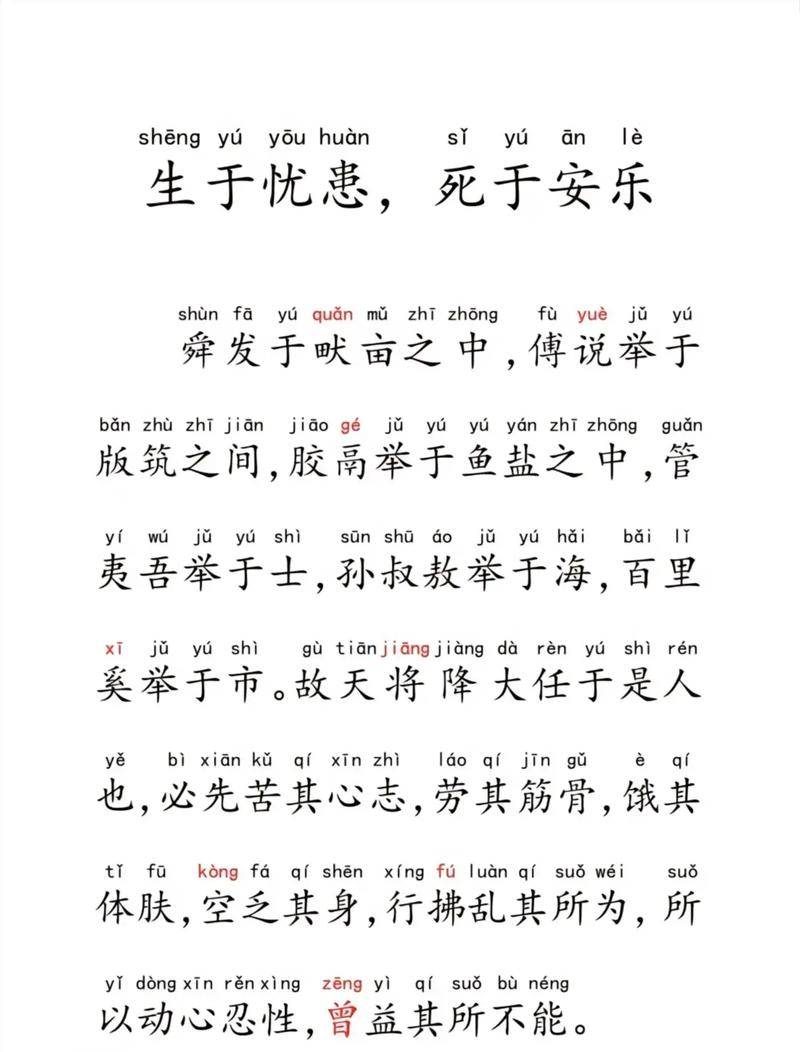 shēng yú yōu huàn sǐ yú ān lè
生于忧患，死于安乐
shùn fā yú quǎn mǔ zhī zhōng fù yuè jǔ yú
舜发于畎亩之中，傅说举于
bǎn zhù zhī jiān jiāo gé jǔ yú yú yán zhī zhōng guǎn
版筑之间，胶鬲举于鱼盐之中，管
yí wú jǔ yú shì sūn shū áo jǔ yú hǎi bǎi lǐ
夷吾举于士，孙叔敖举于海，百里
xī jǔ yú shì gù tiān jiāng jiàng dà rèn yú shì rén
奚举于市。故天将降大任于是人
yě bì xiān kǔ qí xīn zhì láo qí jīn gǔ è qí
也，必先苦其心志，劳其筋骨，饿其
tǐ fū kòng fá qí shēn xíng fú luàn qí suǒ wéi suǒ
体肤，空乏其身，行拂乱其所为，所
yǐ dòng xīn rěn xìng zēng yì qí suǒ bù néng
以动心忍性，曾益其所不能。